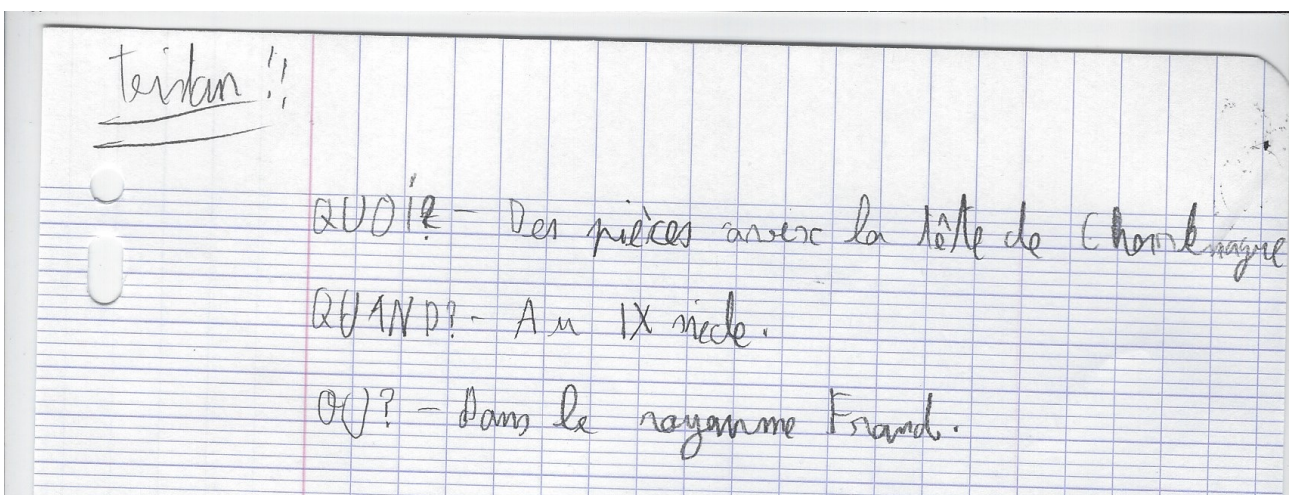 Teistan !!
QUOI? - Des pièces avec la tête de Charlemagne
QUAND? - Au IX siecle.
OU? - Dans le royaume Franc.